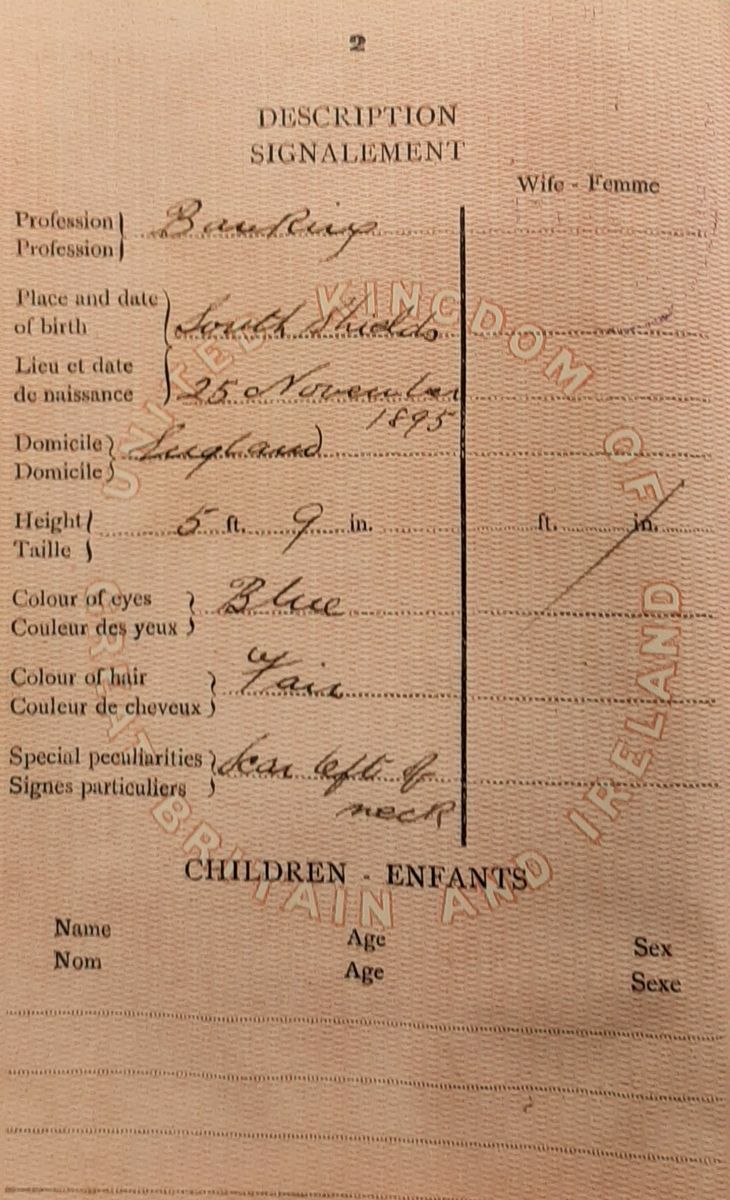 2
DESCRIPTION
SIGNALEMENT
Wife - Femme
Profession Banking
Profession
Place and date
of birth South Shields
Lieu et date
de naissance 25 November
1895
Domicile England
Domicile
Height 5 ft. 9 in. ft. in.
Taille
Colour of eyes Blue
Couleur des yeux
Colour of hair Fair
Couleur de cheveux
Special peculiarities Scar left of
Signes particuliers neck
CHILDREN - ENFANTS
Name Age Sex
Nom Age Sexe
UNITED KINGDOM OF GREAT BRITAIN AND IRELAND